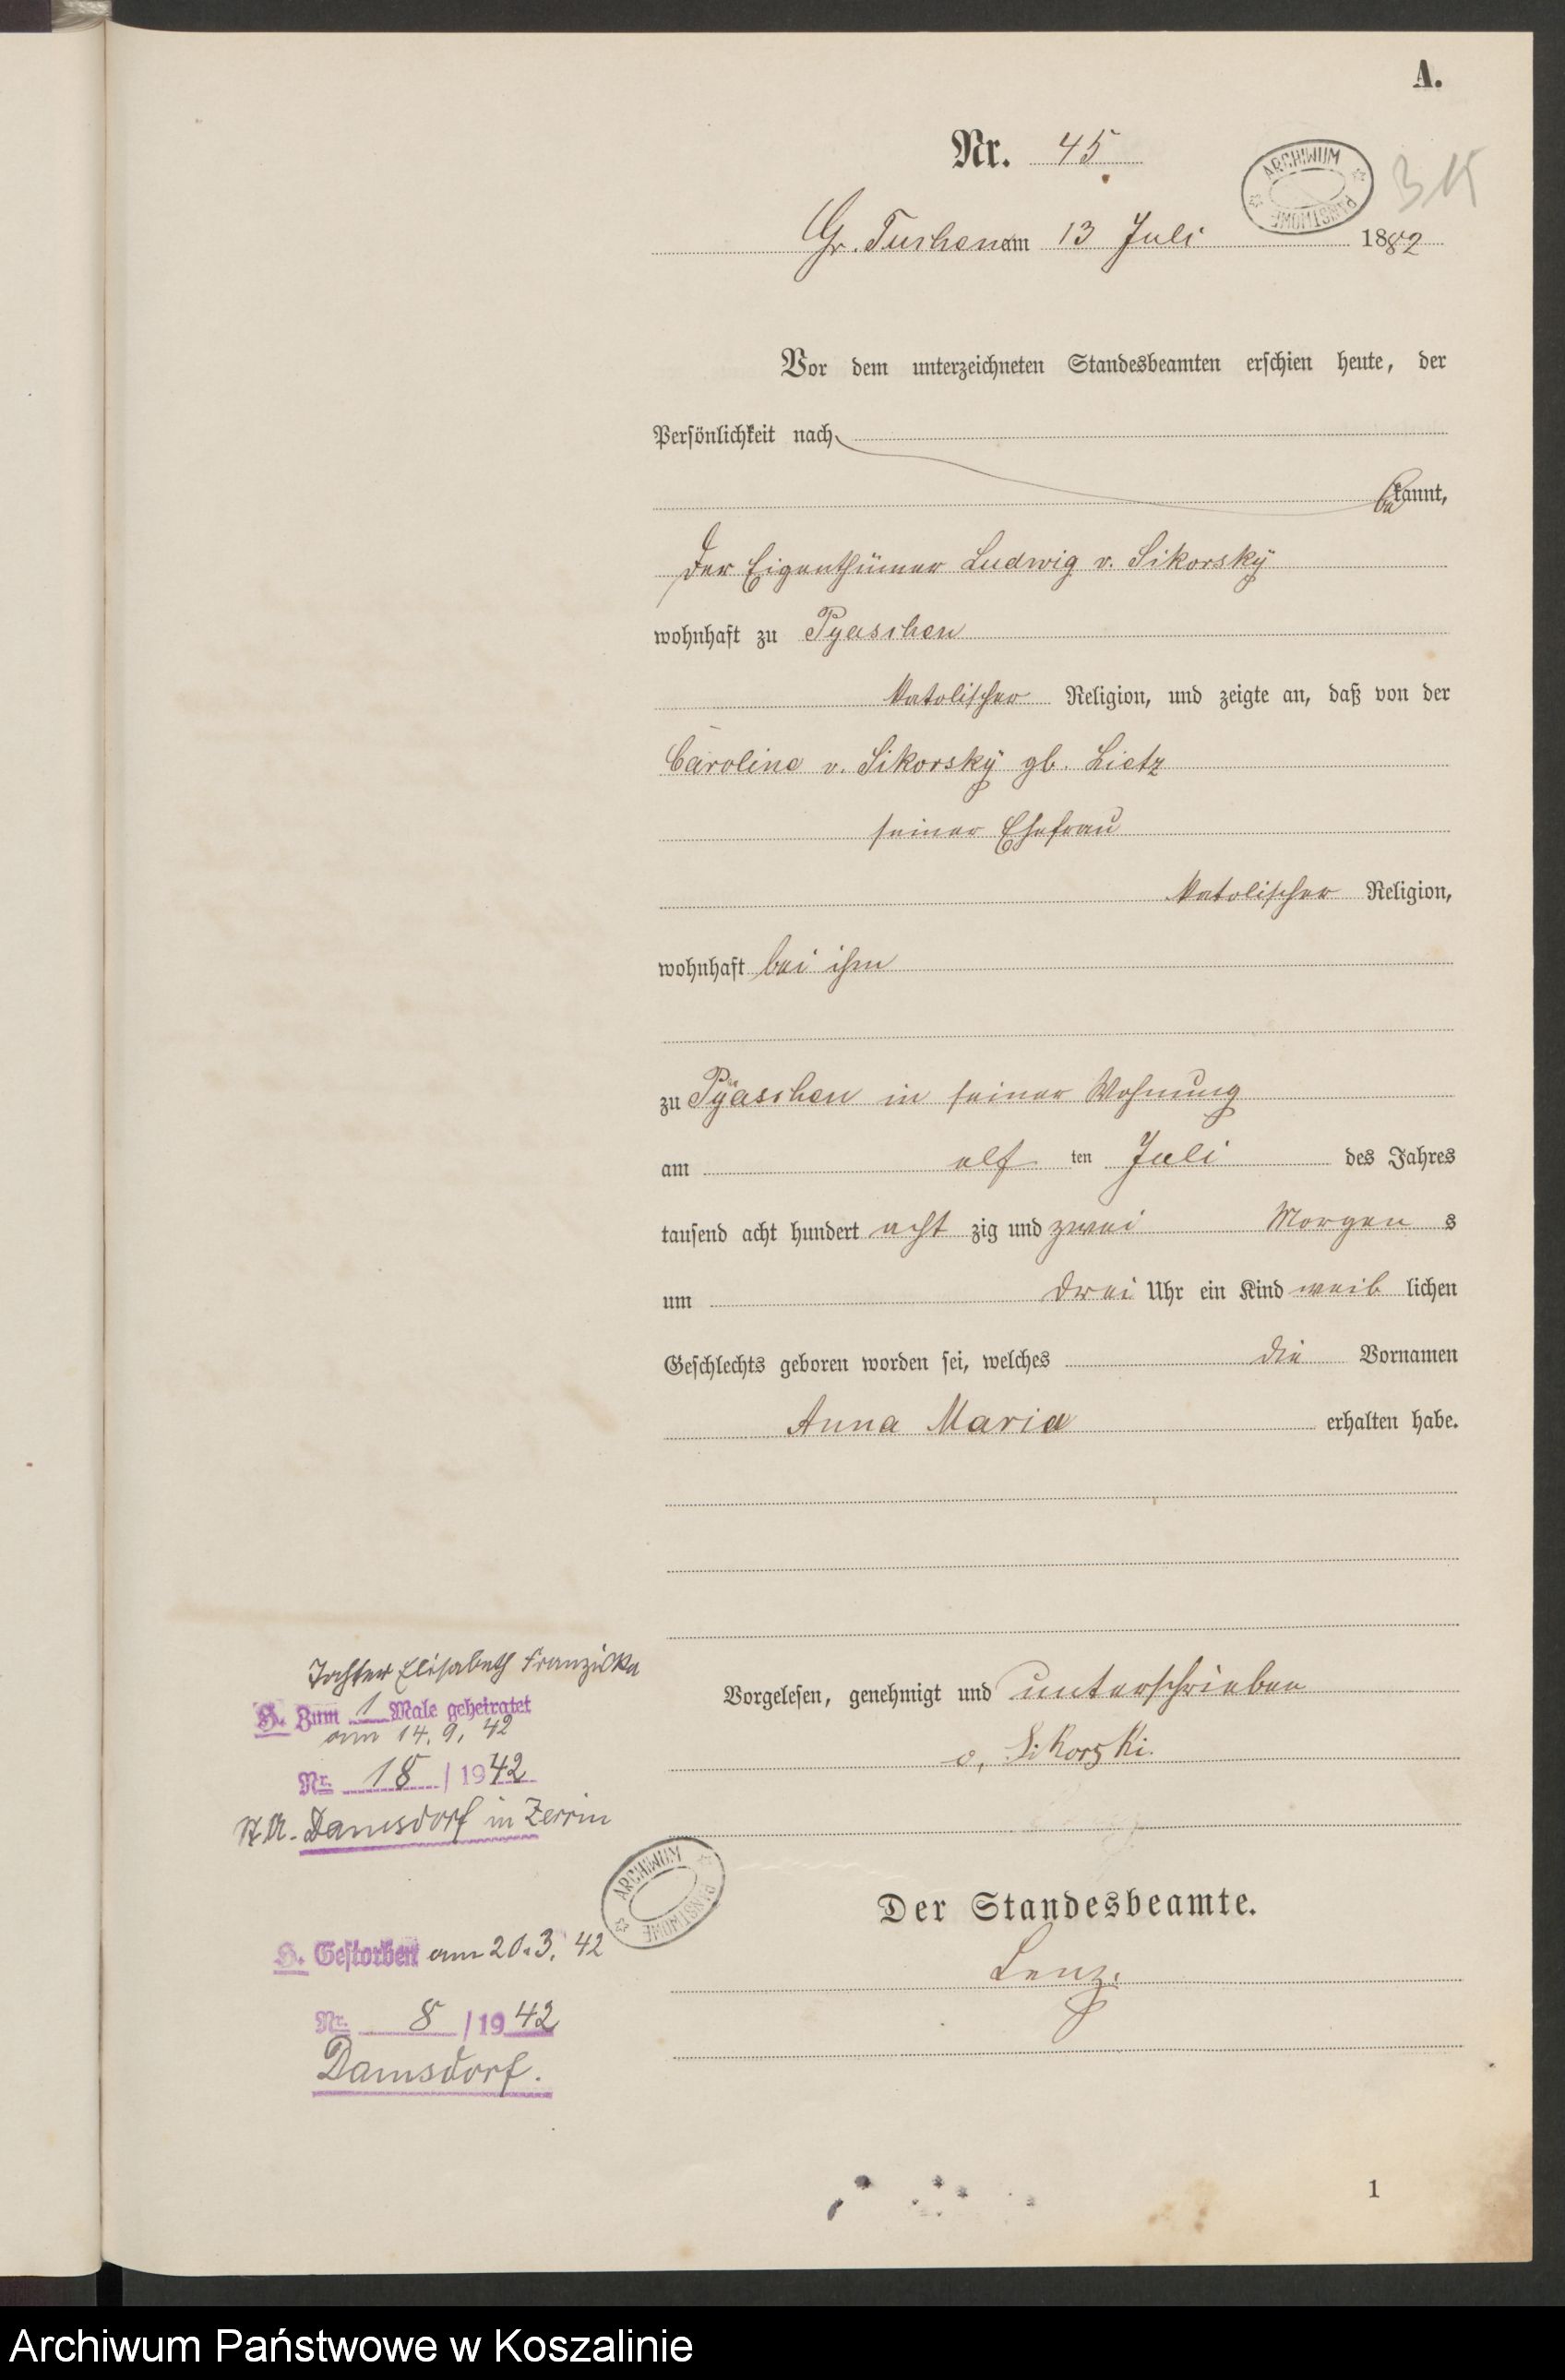 A.
Nr. 45
ARCHIWUM PAŃSTWOWE
315
Gr. Tuchen am 13 Juli 1882
Vor dem unterzeichneten Standesbeamten erschien heute, der
Persönlichkeit nach
bekannt,
der Eigenthümer Ludwig v. Sikorsky
wohnhaft zu Pyaschen
katolischer Religion, und zeigte an, daß von der
Caroline v. Sikorsky gb. Lietz
seiner Ehefrau
katolischer Religion,
wohnhaft bei ihm
zu Pyaschen in seiner Wohnung
am elf ten Juli des Jahres
tausend acht hundert acht zig und zwei Morgen s
um drei Uhr ein Kind weib lichen
Geschlechts geboren worden sei, welches die Vornamen
Anna Maria erhalten habe.
Vorgelesen, genehmigt und unterschrieben
v. Sikorski.
Der Standesbeamte.
Lenz.
Tochter Elisabeth Franziska
H. Zum 1 Male geheiratet
am 14. 9. 42
Nr. 18 / 1942
St.A. Damsdorf in Zerrin
ARCHIWUM PAŃSTWOWE
H. Gestorben am 20.3. 42
Nr. 8 / 1942
Damsdorf.
1
Archiwum Państwowe w Koszalinie